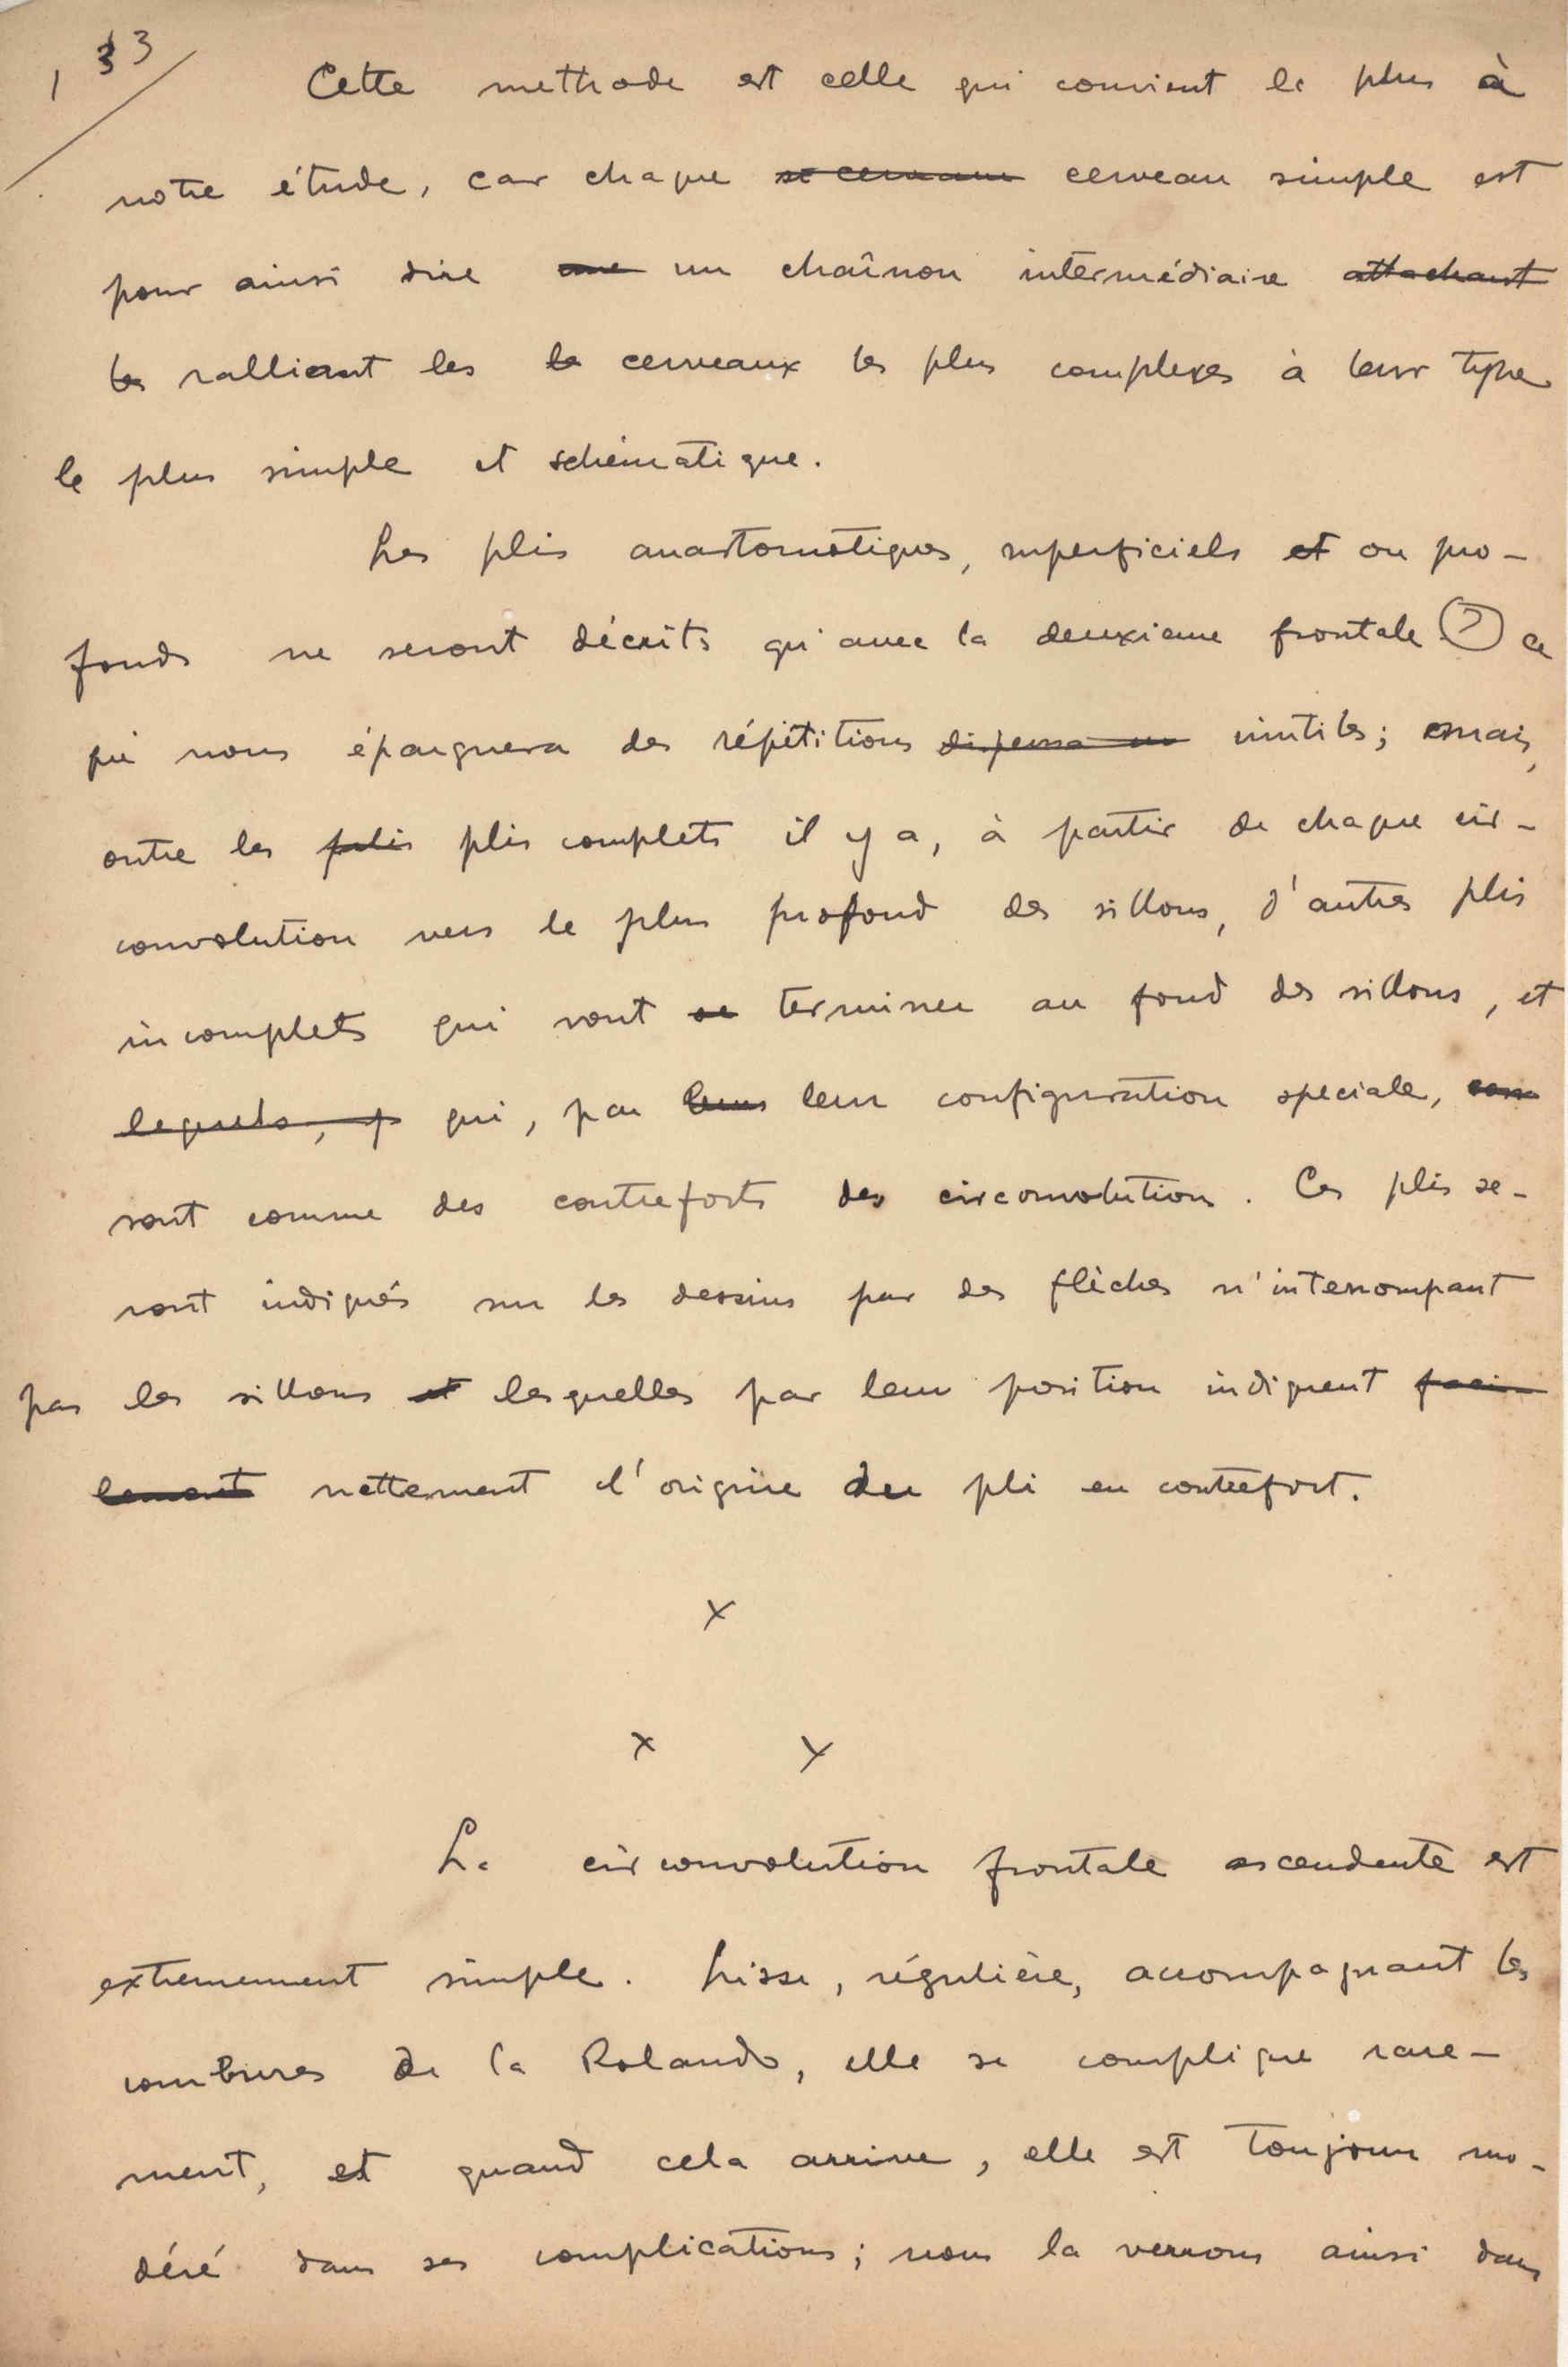 1 33
Cette methode est celle qui convient le plus à
notre étude, car chaque cerveau simple est
pour ainsi dire une un chaînon intermédiaire attachant
les ralliant les le cerveaux les plus complexes à leur type
le plus simple et schématique.
Les plis anastomotiques, superficiels et ou pro-
fonds ne seront décrits qu'avec la deuxieme frontale (?) ce
qui nous épargnera des répétitions inutiles; mais,
outre les plis complets il y a, à partir de chaque cir-
convolution vers le plus profond des sillons, d'autres plis
incomplets qui vont se terminer au fond des sillons, et
lequels, q qui, par leurs leur configuration speciale, com
sont comme des contreforts des circonvolution. Ces plis se-
ront indiqués sur les dessins par des flèches n'interrompant
pas les sillons et lesquelles par leur position indiquent faci-
lement nettement l'origine du pli en contrefort.
x
x x
La circonvolution frontale ascendente est
extremement simple. Lisse, régulière, accompagnant les
combures de la Rolando, elle se complique rare-
ment, et quand cela arrive, elle est toujour mo-
déré dans ses complications; nous la verrons ainsi dans